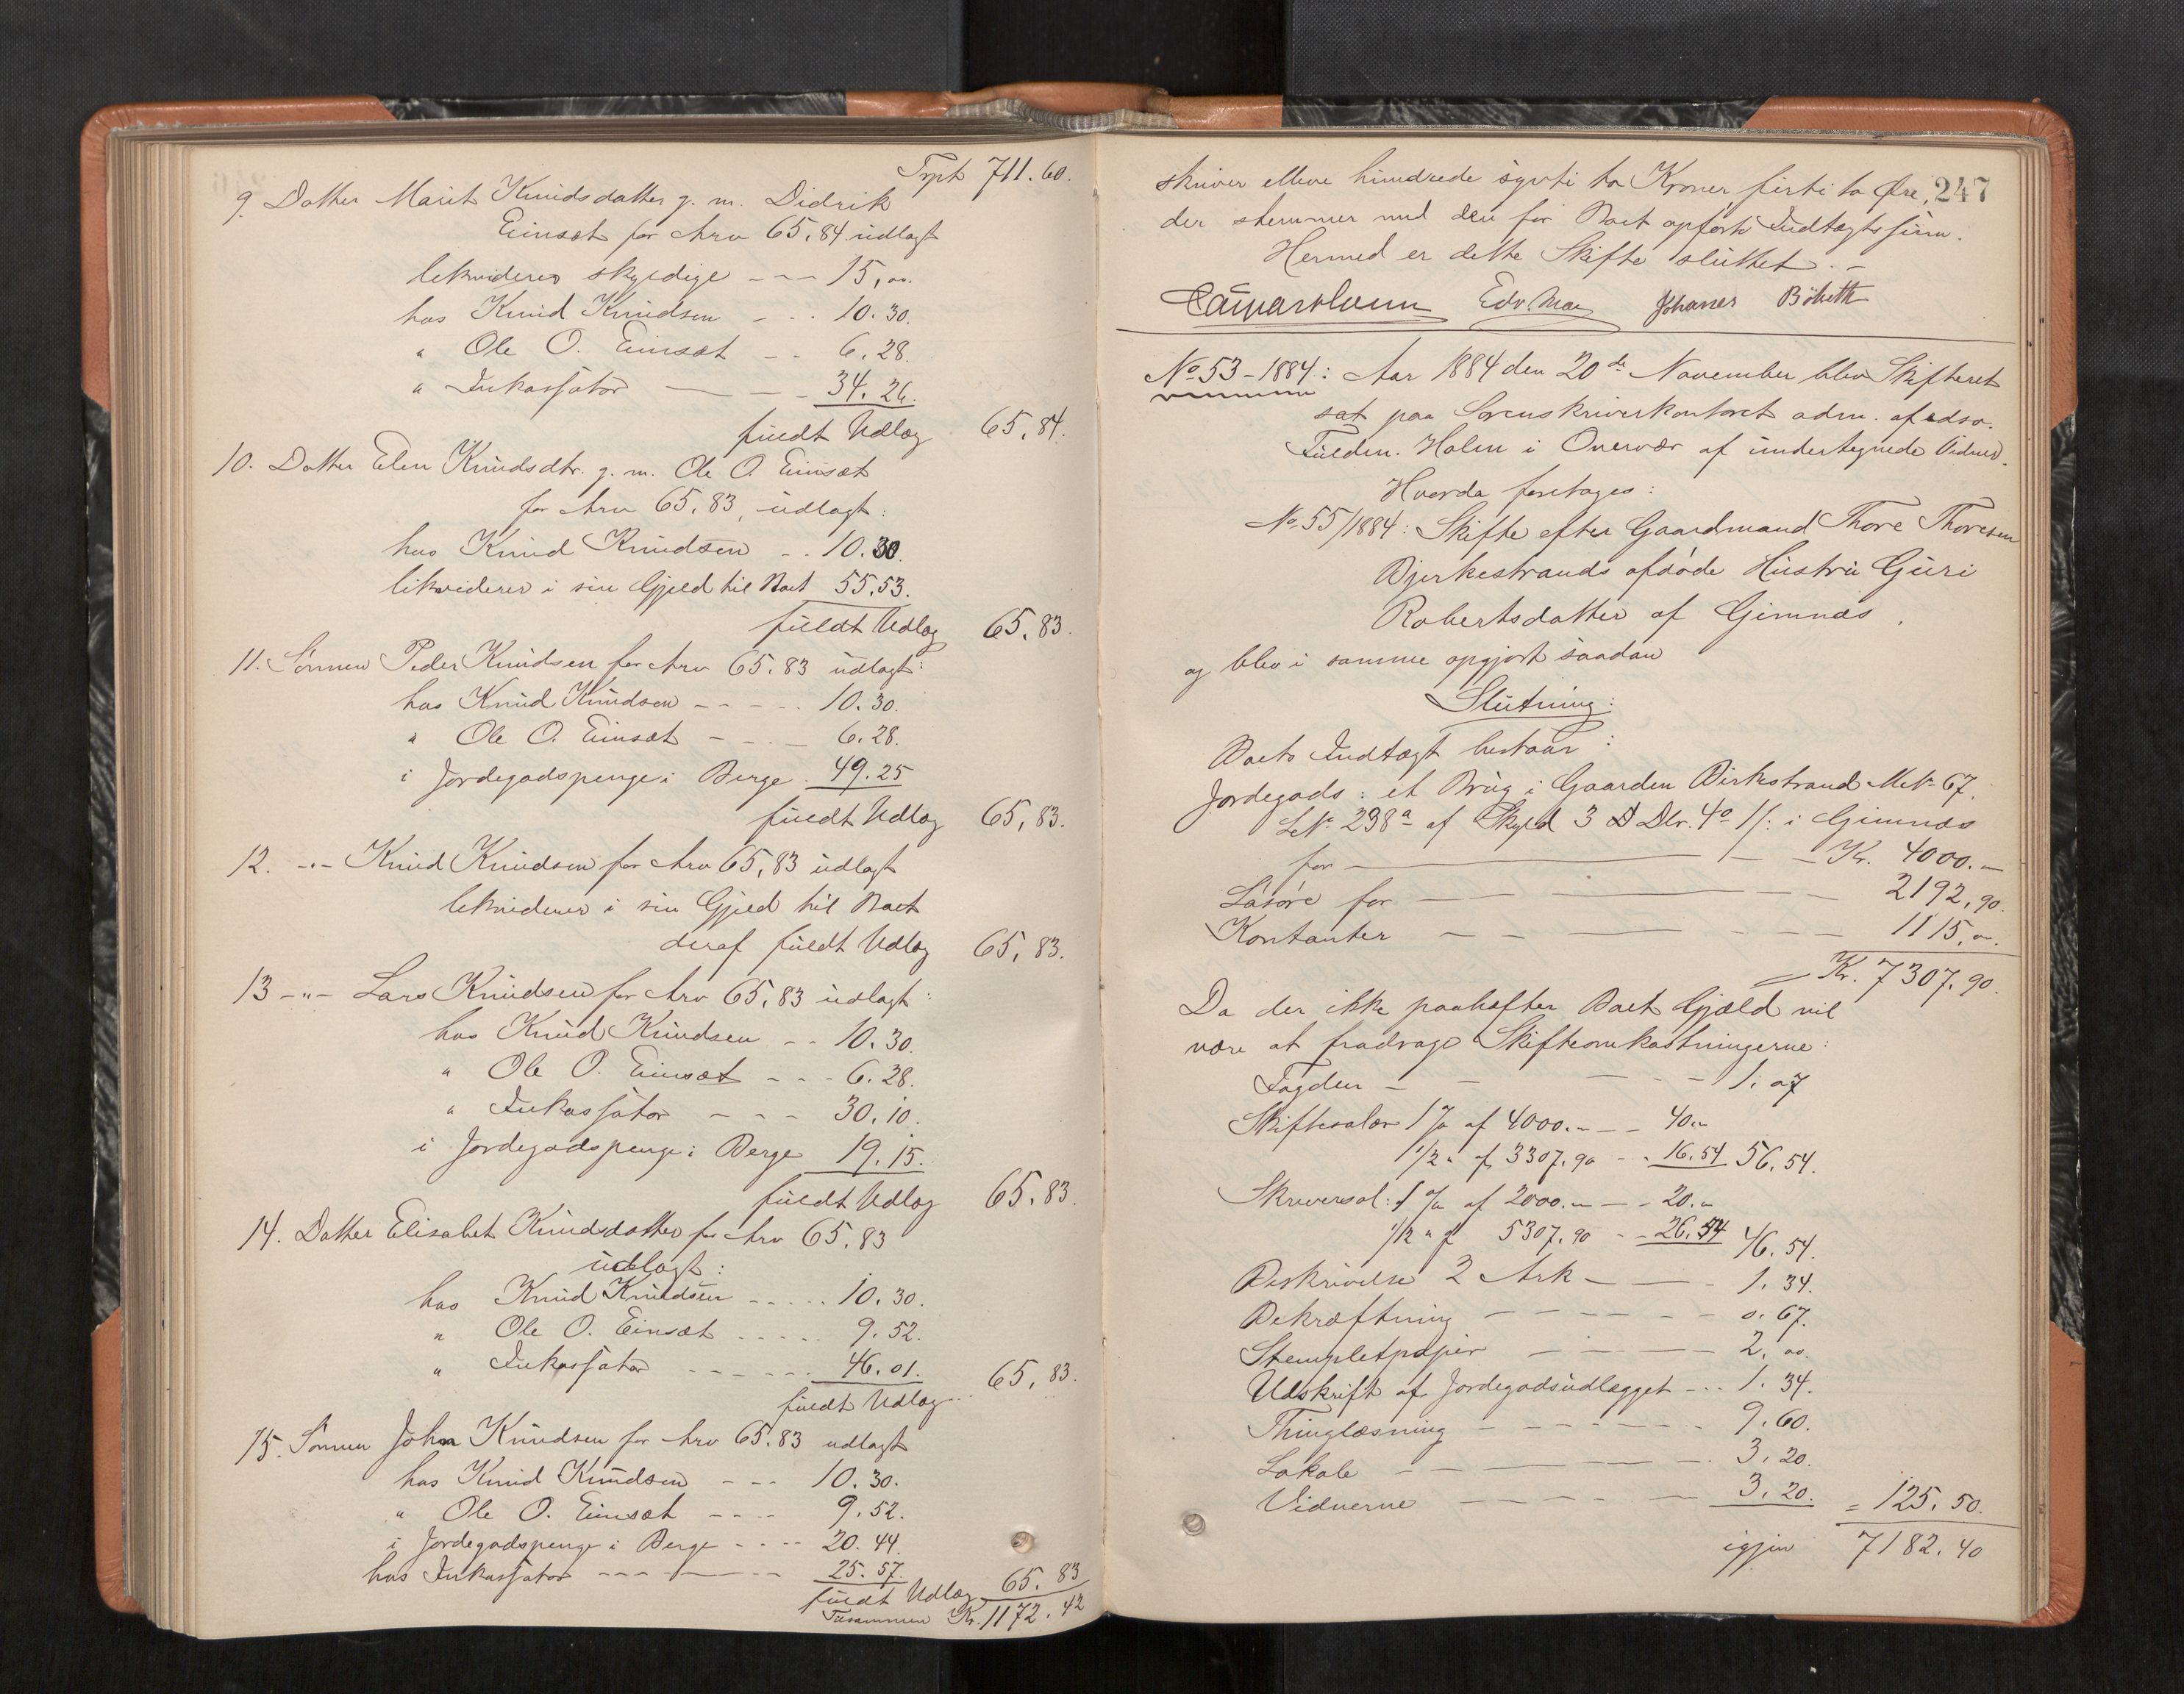 Trpt 711.60.
9. Datter Marit Knudsdatter g. m. Didrik
Einset for Arv 65,84 udlagt
likviderer skyldige - - - 15,oo.
hos Knud Knudsen - - - 10.30.
" Ole O. Einset - - 6.28.
" Inkassator - - 34.26.
fuldt Udlæg 65,84.
10. Datter Elen Knudsdtr. g. m. Ole O. Einset
for Arv 65,83, udlagt:
hos Knud Knudsen - - 10.30.
likviderer i sin Gjæld til Boet 55,53.
fuldt Udlæg 65,83.
11. Sønnen Peder Knudsen for Arv 65.83 udlagt:
hos Knud Knudsen - - - - - 10.30.
" Ole O. Einset - - - - 6.28.
i Jordegodspenge i Berge - 49.25
fuldt Udlæg 65,83.
12. -"- Knud Knudsen for Arv 65,83 udlagt
likviderer i sin Gjæld til Boet
deraf fuldt Udlæg 65,83.
13 -"- Lars Knudsen for Arv 65,83 udlagt:
hos Knud Knudsen - - 10.30.
" Ole O. Einset - - - 6.28.
" Inkassator - - - 30.10.
i Jordegodspenge i Berge 19.15.
fuldt Udlæg 65.83.
14. Datter Elisabet Knudsdatter for Arv 65,83
udlagt:
hos Knud Knudsen - - - - - 10.30.
" Ole O. Einset - - - - - 9.52.
" Inkassator - - - - - - 46.01.
fuldt Udlæg - - 65,83.
15. Sønnen Johan Knudsen for Arv 65.83 udlagt
hos Knud Knudsen - - - 10.30.
" Ole O. Einset - - - - 9.52.
i Jordegodspenge i Berge - - - - 20.44.
hos Inkassator - - - - - - 25.57.
fuldt Udlæg 65.83
Tilsammen Kr. 1172.42
skriver elleve hundrede sytti to Kroner firti to Øre, 247
der stemmer med den for Boet opførte Indtægtssum.
Hermed er dette Skifte sluttet. -
Edv. Johanes
No 53 - 1884: Aar 1884 den 20de November blev Skifteret
sat paa Sorenskriverkontoret adm. af edsv.
Fuldm. Holm i Overvær af undertegnede Vidner.
Hvorda foretages:
No 55/1884: Skifte efter Gaardmand Thore Thoresen
Bjerkestrands afdøde Hustru Guri
Robertsdatter af Gimnæs,
og blev i samme opgjort saadan
Slutning:
Boets Indtægt bestaar:
Jordegods: et Brug i Gaarden Birkestrand MNo 67.
LNo 298a af Skyld 3 D Dlr. 4o 1/: i Gimnæs
for - - - Kr. 4000.-
Løsøre for - - - 2192,90.
Kontanter - - - - - - 1115,-.
Kr. 7307,90.
Da der ikke paahefter Boet Gjæld vil
være at fradrage Skifteomkostningerne:
Fogden - - - - - 1.07
Skiftesalær 1 % af 4000.- - - 40.-
1/2 " af 3307,90 - - 16.54 56.54.
Skriversal: 1 % af 2000.- - - 20.-
1/2 " af 5307,90 - - 26.54 46.54.
Beskrivelse 2 Ark - - - 1.34.
Bekræftning - - - - - - 0.67.
Stempletpapir - - - - 2.oo.
Udskrift af Jordegodsudlægget - - - 1.34.
Thinglæsning - - - - - - - 9.60.
Lokale - - - - 3.20.
Vidnerne - - - - - 3.20. = 125.50.
igjen 7182.40